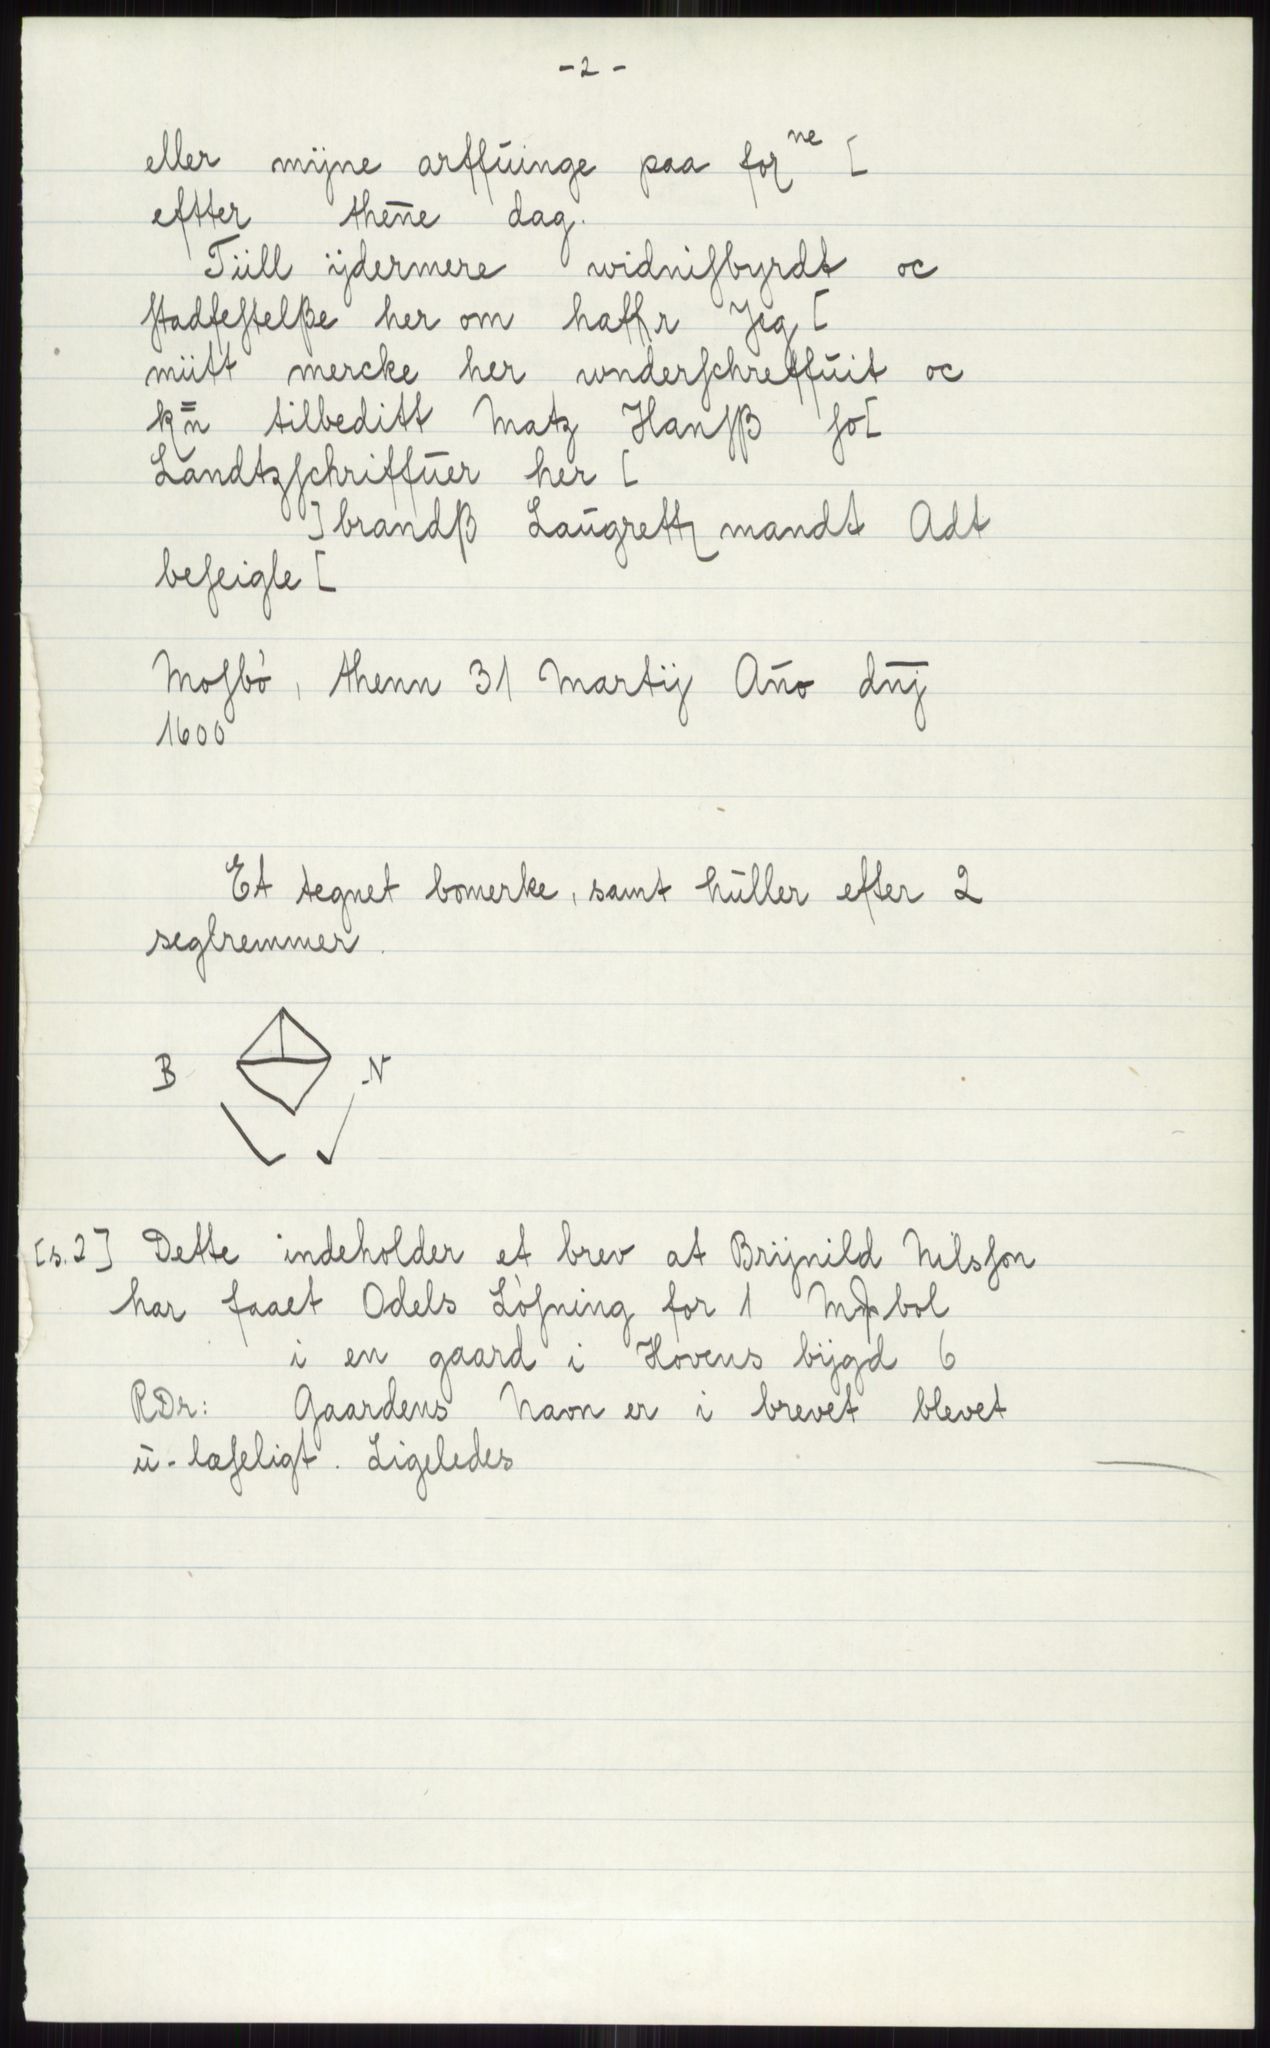 - 2 -
eller mÿne arffŭinge paa forⁿᵉ [
eftter thēne dag.
Tüll ÿdermere widniſbyrdt oc
ſtadfeſtelße her om haffr Jeg [
mütt mercke her wnderſchreffŭit oc
tilbeditt Matz Hanſß ſo[
Landtzſchriffŭer her [
] brandß Laŭgrettz mandt Adt
beſeigle [
Moſbö, thenn 31 Martÿ An̄o dn̄j
1600
Et tegnet bomerke, samt hŭller efter 2
seglremmer.
B N
[s.2] Dette indeholder et brev at Brÿnild Nilsſon
har faaet Odels Löſning for 1 bol
i en gaard i Hovens bÿgd 6
RDr: Gaardens Navn er i brevet blevet
ŭ-læſeligt. Ligeledes